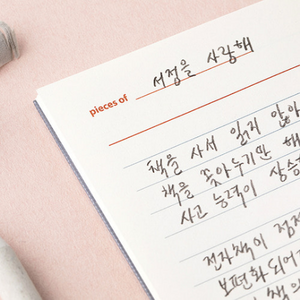 서정을 사랑해
pieces of
책을 사서 읽지 않아
책을 꽂아두기만 해
사고 능력이 상승
전자책이 점점
보편화되어
책의